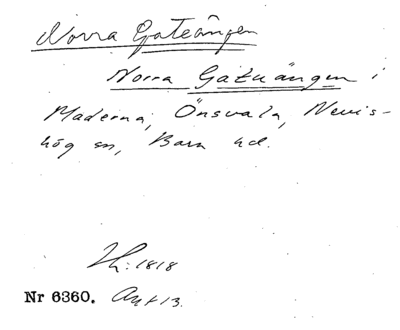 Norra Gateängen
Norra Gatuängen i
Maderna, Önsvala, Nevis-
hög sn, Bara hd.
Lh: 1818
Nr 6360. Akt 13.